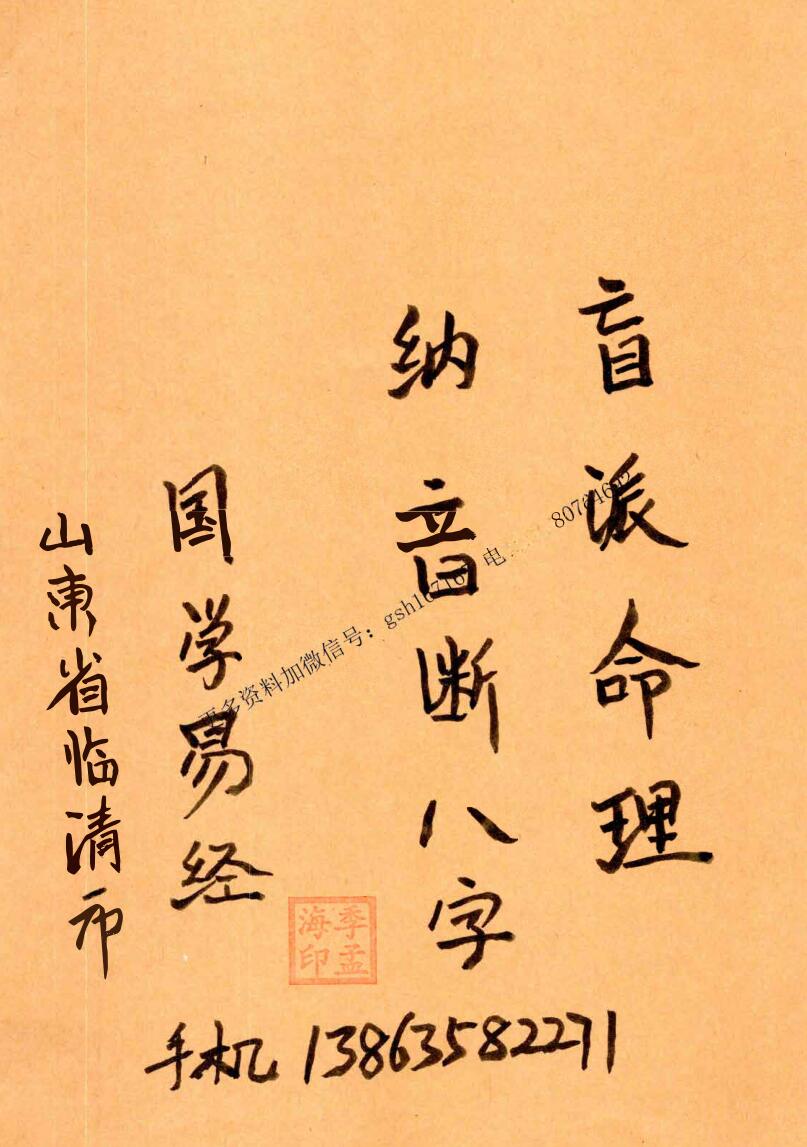 盲派命理
纳音断八字
国学易经
山东省临清市
季孟
海印
手机 13863582271
更多资料加微信号：gsh16716 电 80764692